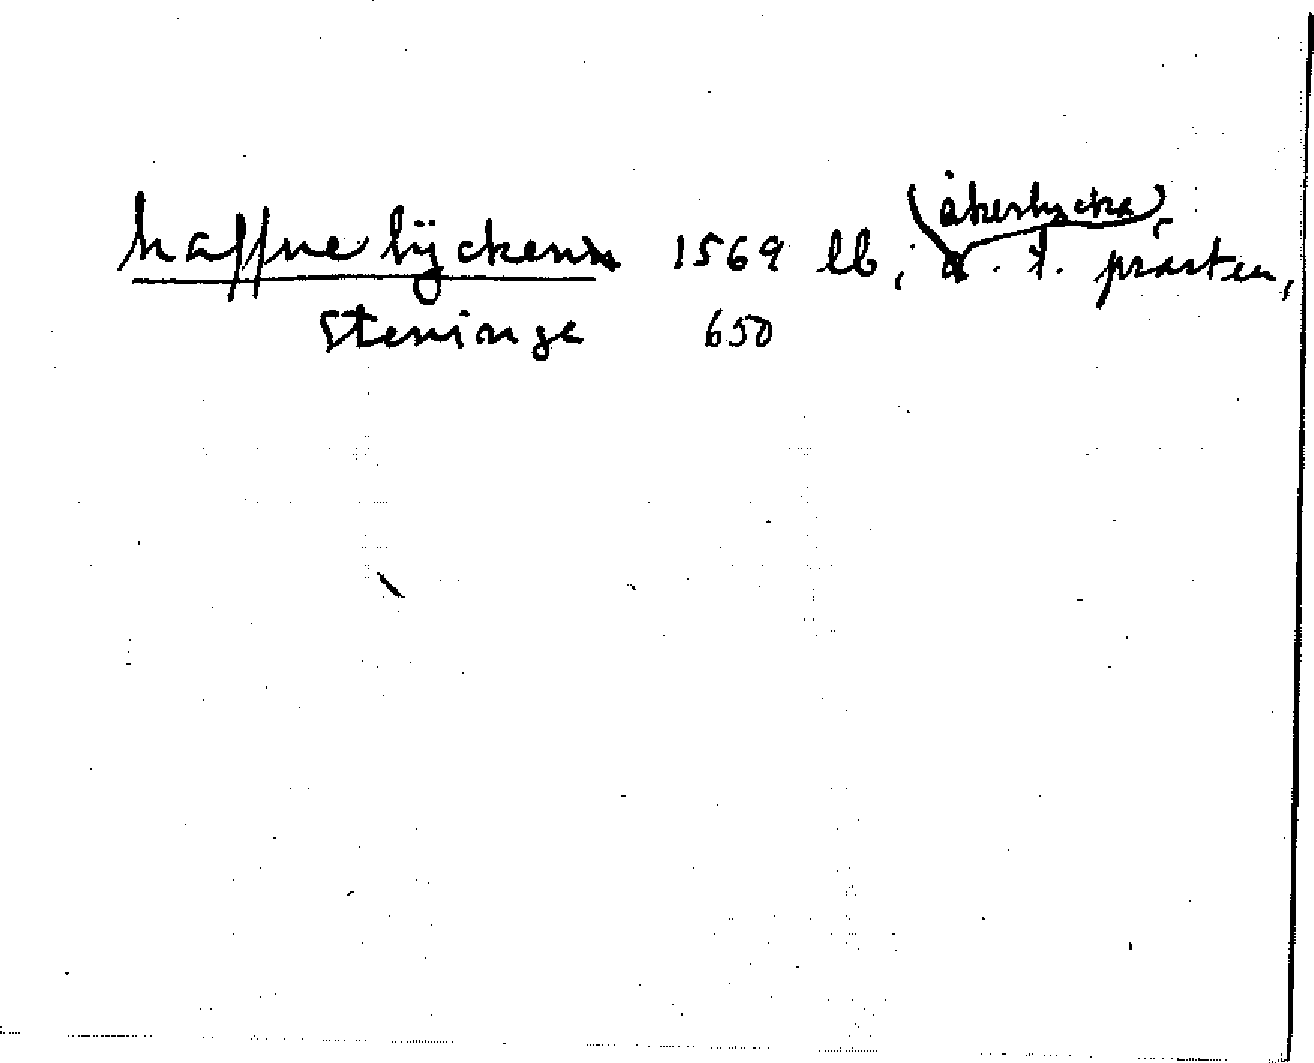 haffne lÿcken 1569 lb; (åkerlycka) t. prästen,
Steninge 650